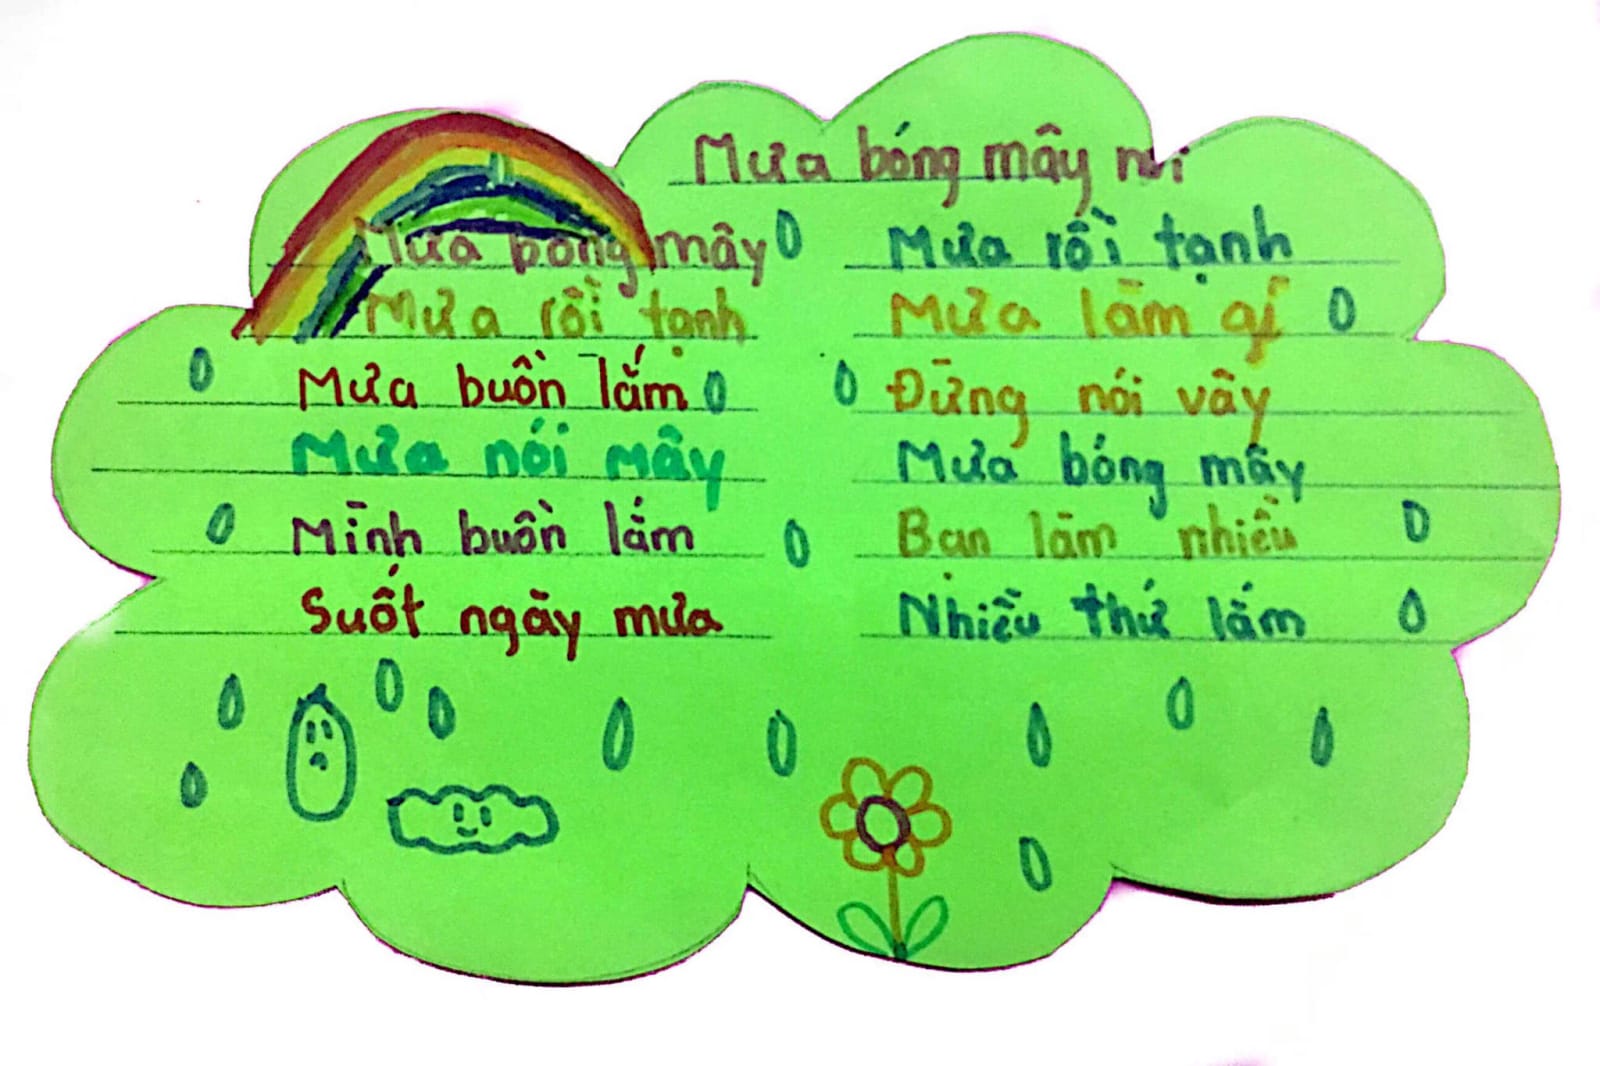 Mưa bóng mây
Mưa bóng mây
Mưa rồi tạnh
Mưa buồn lắm
Mưa nói mây
Mình buồn lắm
Suốt ngày mưa
Mưa rồi tạnh
Mưa làm gì
Đừng nói vậy
Mưa bóng mây
Bạn làm nhiều
Nhiều thứ lắm